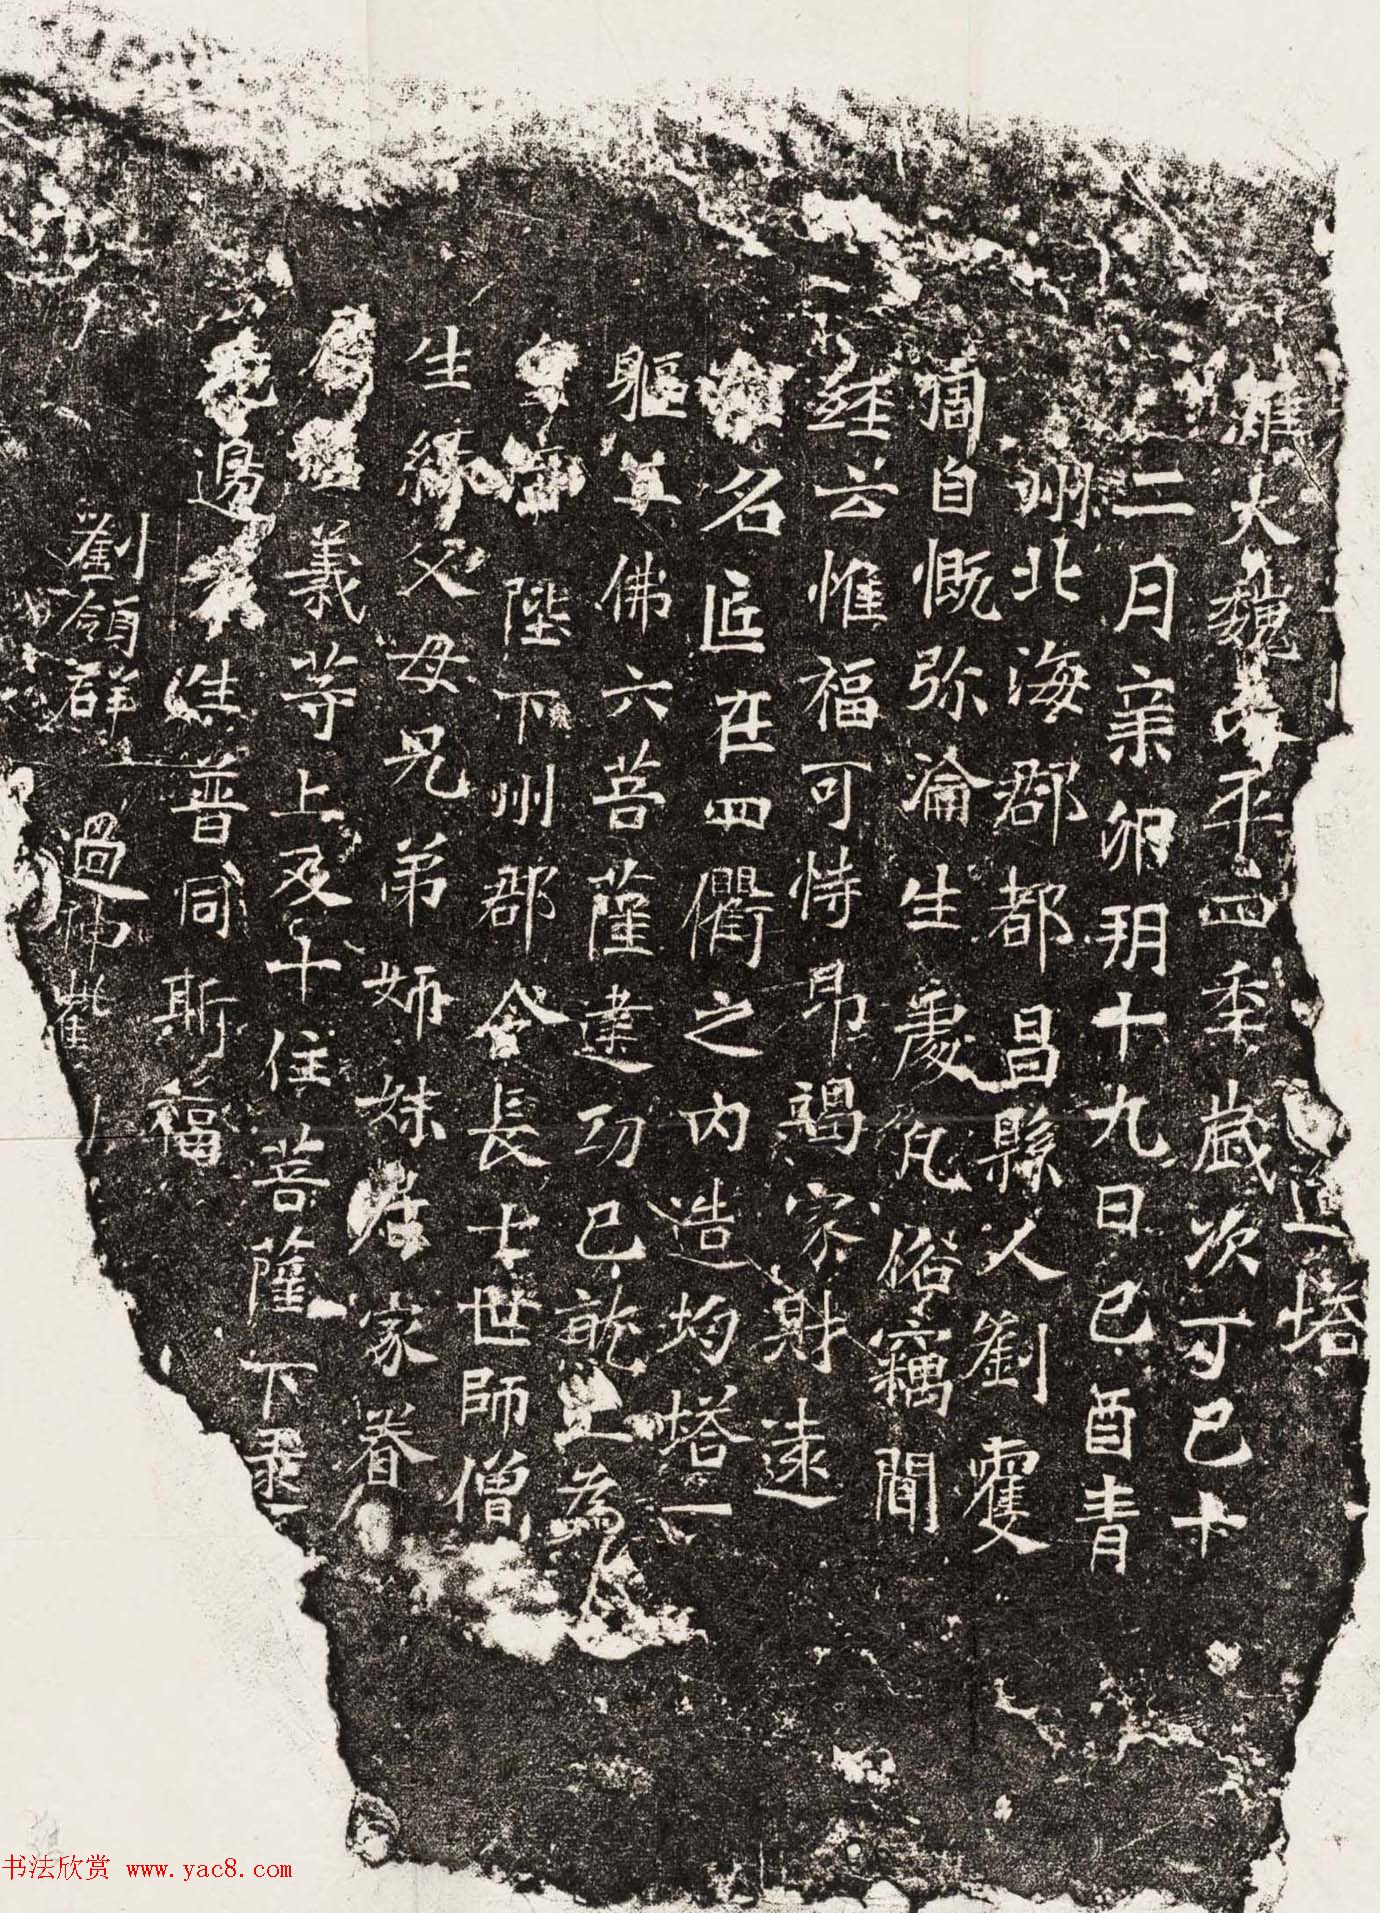 造塔
維大魏永平四年歲次丁巳十
二月亲卯玥十九日巳酉青
州北海郡都昌縣人劉雙
周自慨弥淪生處凡俗竊聞
經云惟福可恃昂竭家財遠
名匠在四衢之内造均塔一
軀五佛六菩薩建功已訖上為
皇帝陛下州郡令長士世師僧
生緣父母兄弟姉妹居家眷
義等上及十住菩薩下
無邊衆生普同斯福
劉領群
書法欣赏 www.yac8.com